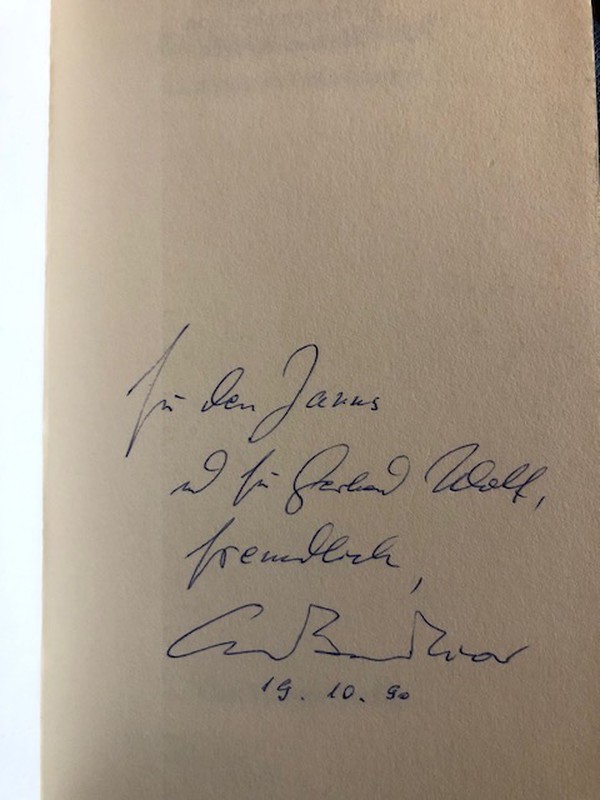 für den Janus
und für Gerhard Wolf,
freundlich,
19. 10. 90